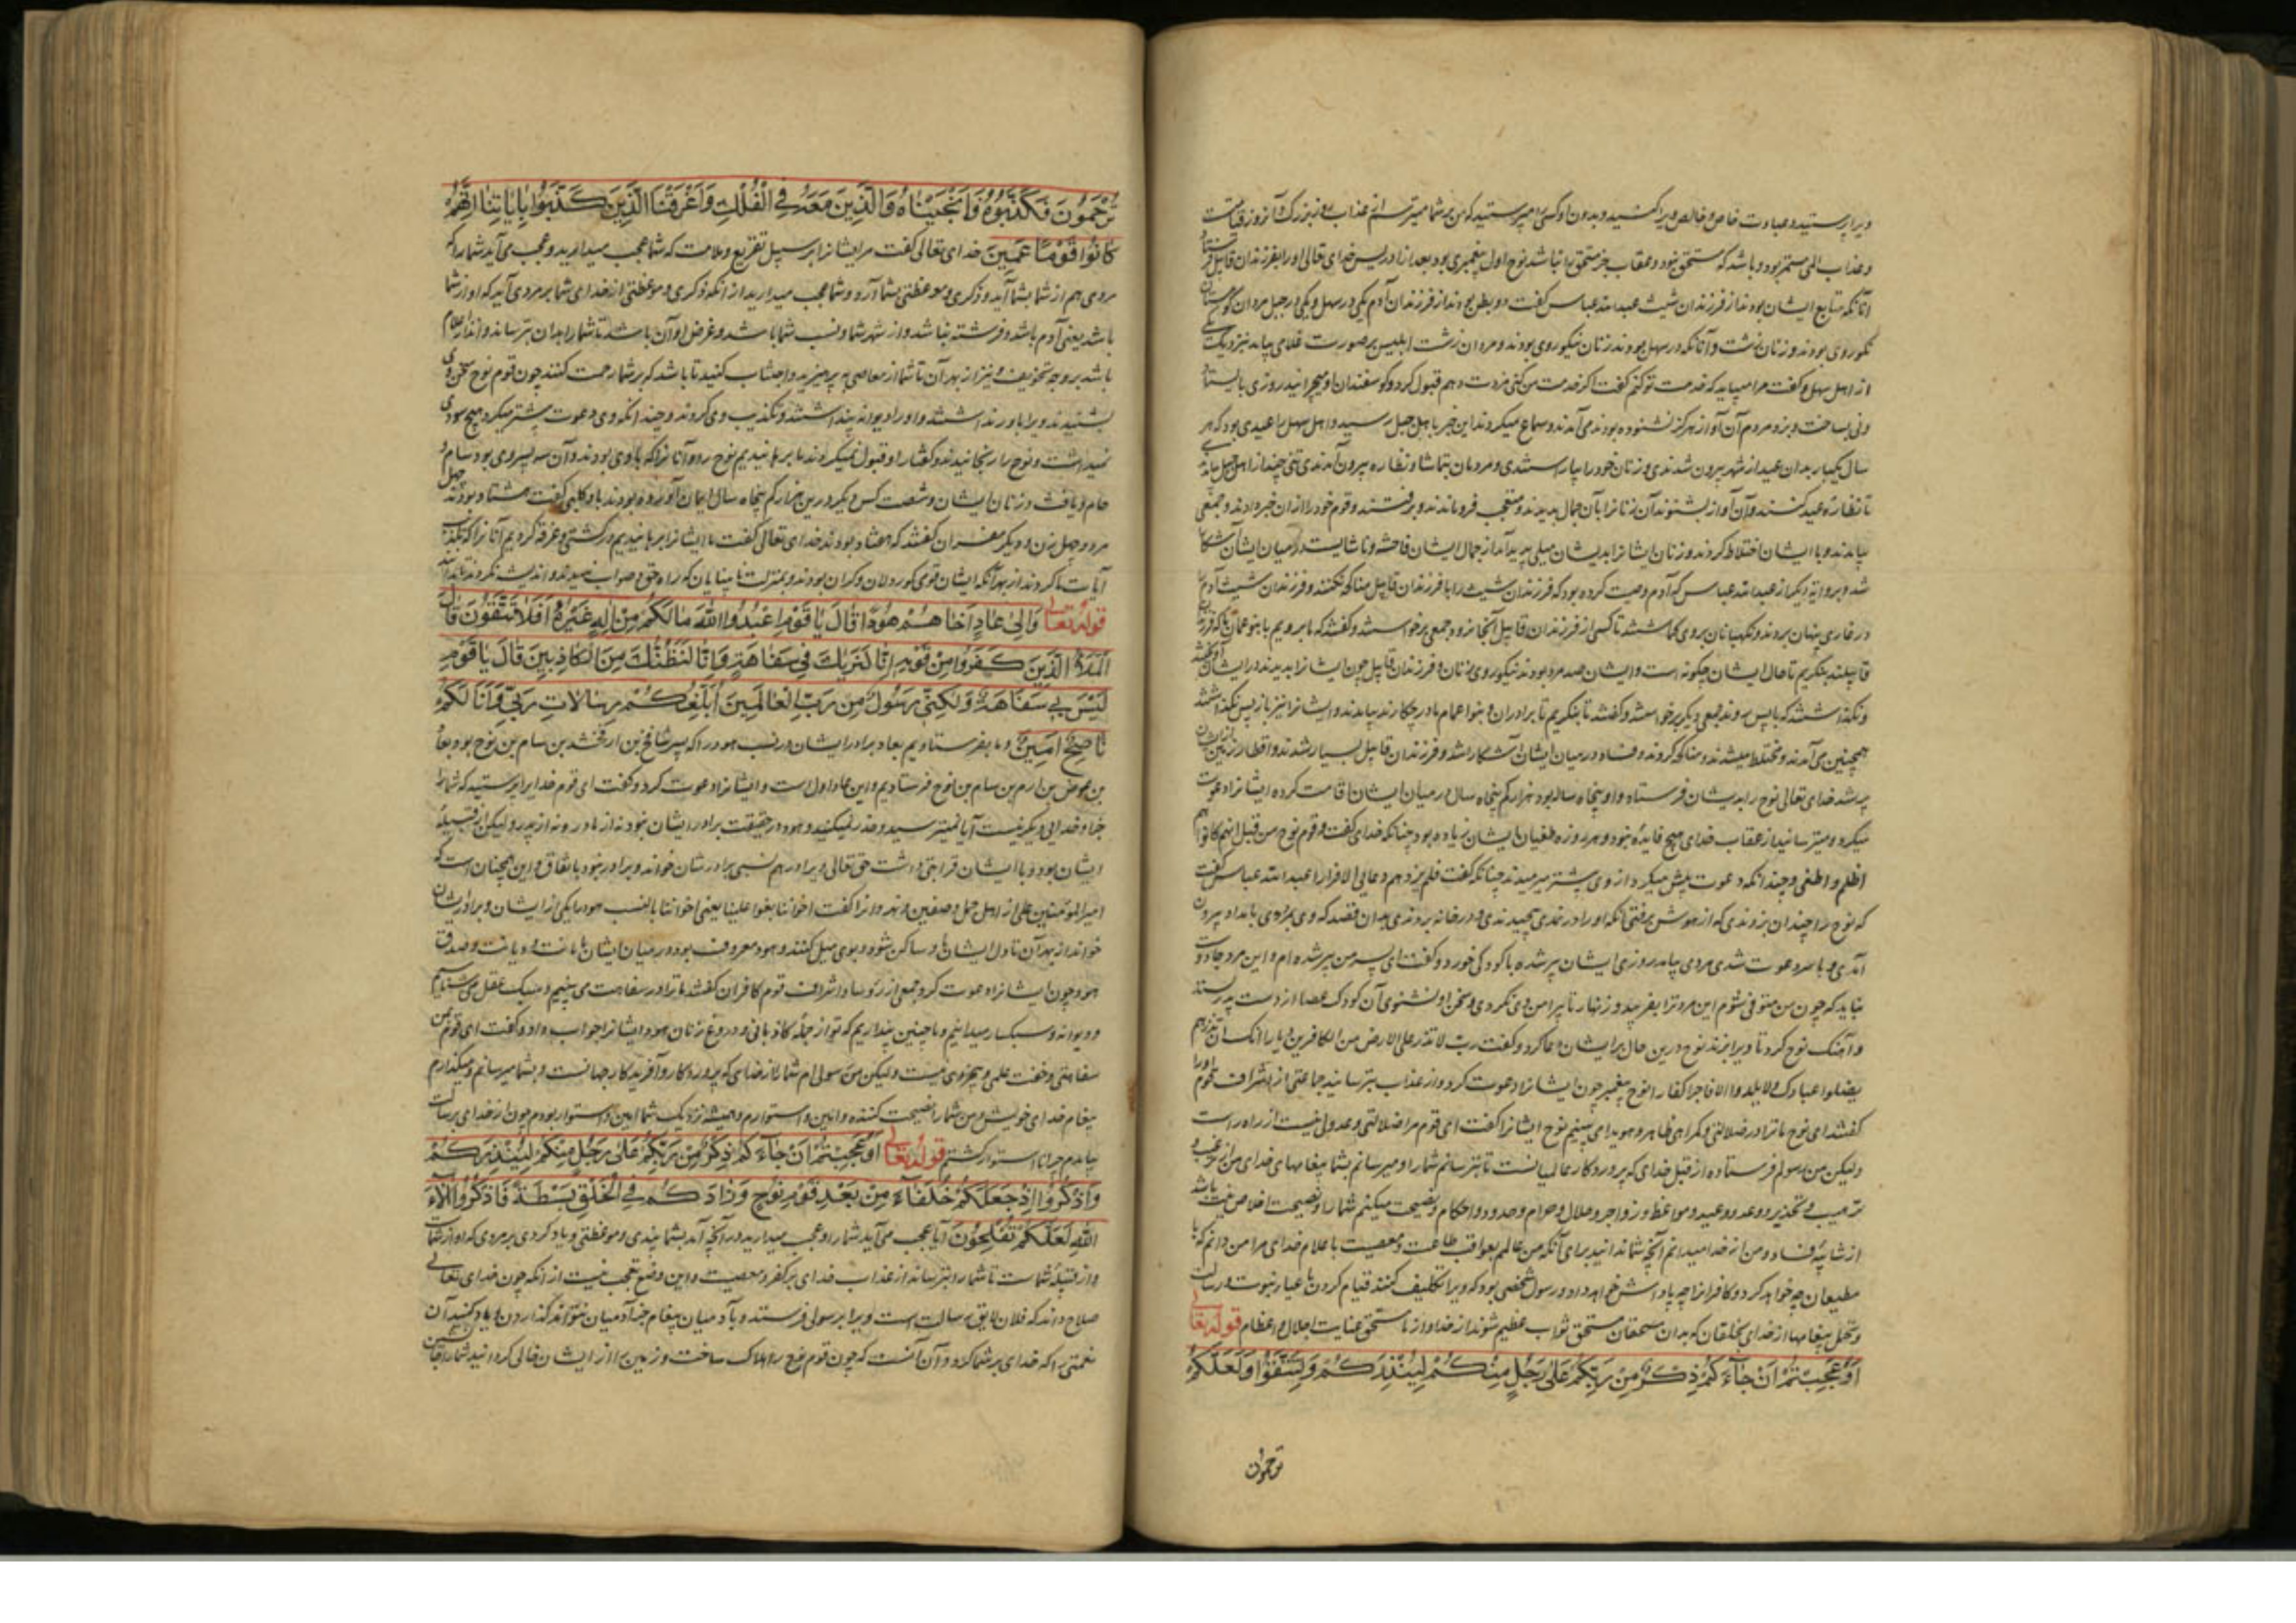 ویرا پرستید و عبادت خاص و خالص ویرا کنید و بدون او کسی را مپرستید که من بر شما میترسم از عذاب روز بزرک آنروز قیامت
و عذاب الهی مستمر بود و باشد که مستحق بود و عقاب جز مستحق را نباشد نوح اول پیغمبری بود بعد از ادریس خدای تعالی اورا بفرزندان قابیل
آنانکه متابع ایشان بودند از فرزندان شیث عبدالله عباس گفت دو بطن بودند از فرزندان آدم یکی در سهل و یکی در جبل مردان کوهستان
نکوروی بودند و زنان زشت و آنانکه در سهل بودند زنان نیکوروی بودند و مردان زشت ابلیس بر صورت غلامی بیامد نزدیک
از اهل سهل و گفت مرا میباید که خدمت تو کنم گفت اگر خدمت من کنی مزدت دهم قبول کرد و گوسفندان او میچرانید روزی بایستاد
ونی بساخت و بزد مردم آن آواز هرگز نشنوده بودند می آمدند و سماع میکردند این خبر باهل جبل رسید و اهل سهل را عیدی بود که هر
سال یکبار بدان عید از شهر بیرون شدندی و زنان خود را بیاراستندی و مردمان بتماشا و نظاره بیرون آمدندی تنی چند از اهل جبل بیامد
تا نظاره عید کنند و آن آواز بشنوند آن زنانرا بآن جمال بدیدند و متعجب فروماندند و برفتند و قوم خود را از ان خبر دادند و جمعی
بیامدند و با ایشان اختلاط کردند و زنان ایشانرا بدیشان میلی پدید آمد از جمال ایشان فاحشه و ناشایست در میان ایشان آشکارا
شد و بروایة دیگر از عبدالله عباس که آدم وصیت کرده بود که فرزندان شیث را با فرزندان قابیل مناکحه نکنند و فرزندان شیث آدم را
در غاری پنهان بردند و نگهبانان بروی گماشتند تا کسی از فرزندان قابیل آنجا نرود جمعی برخواستند و گفتند که ما برویم با بنو عمان
قابیلند بنگریم تا حال ایشان چگونه است و ایشان صد مرد بودند نیکوروی زنان و فرزندان قابیل چون ایشانرا بدیدند در ایشان
و نگذاشتند که باپس روند جمعی دیگر برخواستند و گفتند تا بنگریم تا برادران و بنو اعمام ما در چه کارند بیامدند و ایشانرا نیز باز پس نگذاشتند
همچنین می آمدند و مختلط میشدند و مناکحه کردند و فساد در میان ایشان آشکارا شد و فرزندان قابیل بسیار شدند و اقطار زمین
پر شد خدای تعالی نوح را بدیشان فرستاد و او پنجاه ساله بود هزار کم پنجاه سال در میان ایشان اقامت کرده ایشانرا دعوت
میکرد و میترسانید از عقاب خدای هیچ فایده نبود و هر روزه طغیان ایشان زیاده بود چنانکه خدای گفت و قوم نوح من قبل انهم کانوا هم
اظلم و اطغی و چندانکه دعوت بیش میکرد از وی بیشتر میرمیدند چنانکه گفت فلم یزدهم دعایی الا فرارا عبدالله عباس گفت
که نوح را چندان بزدندی که از هوش برفتی آنکه اورا در نمدی پیچیدندی و در خانه بردندی بدان قصد که وی بمردی بامداد بیرون
آمدی و با سر دعوت شدی مردی بیامد روزی ایشان پیر شده با کودکی خورد و گفت ای پسر من پیر شده ام و این مرد جادو
نباید که چون من متوفی شوم این مرد ترا بفریبد و زنهار تا پیرامن وی نگردی و سخن او نشنوی آن کودک عصا از دست پدر بستد
و آهنگ نوح کرد تا ویرا بزند نوح درین حال بر ایشان دعا کرد و گفت رب لا تذر علی الارض من الکافرین دیارا انک ان تذرهم
یضلوا عبادک و لا یلدوا الا فاجرا کفارا نوح پیغمبر چون ایشانرا دعوت کرد و از عذاب بترسانید جماعتی از اشراف قوم اورا
گفتند ای نوح ما ترا در ضلالتی و گمراهی ظاهر و هویدا می بینیم نوح ایشانرا گفت ای قوم مرا ضلالتی و عدولی نیست از راه راست
ولیکن من رسولم فرستاده از قبل خدای که پروردگار عالمیانست تا بترسانم شمارا و میرسانم بشما پیغامهای خدای من از ترغیب و
ترهیب و تحذیر و وعد و وعید و مواعظ و زواجر و حلال و حرام و حدود و احکام و نصیحت میکنم شمارا و نصیحت اخلاص نیت باشد
از شائبه فساد و من از خدا میدانم آنچه شما ندانید برای آنکه من عالمم بعواقب طاعت و معصیت با علام خدای مرا من دانم که با
مطیعان چه خواهد کرد و کافرانرا چه پاداش خواهد داد و رسول شخصی بود که ویرا تکلیف کنند قیام کردن باعباء نبوت و رسالت
و تحمل پیغامها از خدای بخلقان که بدان مستحقان مستحق ثواب عظیم شوند از خدا و از ما مستحق عنایت اجلال و اعظام قوله تعالی
أَوَعَجِبْتُمْ أَنْ جَاءَكُمْ ذِكْرٌ مِنْ رَبِّكُمْ عَلَىٰ رَجُلٍ مِنْكُمْ لِيُنْذِرَكُمْ وَلِتَتَّقُوا وَلَعَلَّكُمْ
ترحمون
تُرْحَمُونَ فَكَذَّبُوهُ وَأَنْجَيْنَاهُ وَالَّذِينَ مَعَهُ فِي الْفُلْكِ وَأَغْرَقْنَا الَّذِينَ كَذَّبُوا بِآيَاتِنَا إِنَّهُمْ
كَانُوا قَوْمًا عَمِينَ خدای تعالی گفت مر ایشانرا بر سبیل تقریع و ملامت که شما عجب میدارید و عجب می آید شمارا که
مردی هم از شما بشما آید و ذکری و موعظتی بشما آرد و شما عجب میدارید از آنکه ذکری و موعظتی از خدای شما بر مردی آید که او از شما
باشد یعنی آدم باشد و فرشته نباشد و از شهر شما و نسب شما باشد و غرض او آن باشد تا شمارا بدان بترساند و انذار اعلام
باشد بر وجه تخویف و نیز از بهر آن تا شما از معاصی بپرهیزید و اجتناب کنید تا باشد که بر شما رحمت کنند چون قوم نوح سخن وی
بشنیدند ویرا باور نداشتند و اورا دیوانه پنداشتند و تکذیب وی کردند و چندانکه وی دعوت بیشتر میکرد هیچ سودی
نمیداشت و نوح را رنجانیدند و گفتار او قبول نمیکردند ما برهانیدیم نوح را و آنانرا که با وی بودند و آن سه پسر وی بود سام و
حام و یافث و زنان ایشان و شصت کس دیگر درین هزار کم پنجاه سال ایمان آورده بودند باو کلبی گفت هشتاد بودند چهل
مرد و چهل زن و دیگر مفسران گفتند که هفتاد بودند خدای تعالی گفت ما ایشانرا برهانیدیم در کشتی و غرقه کردیم آنانرا که تکذیب
آیات ما کردند از بهر آنکه ایشان قومی کوردلان و کران بودند و بمنزلت نابینایان که راه حق و صواب ندیدند و اندیشه نکردند
قوله تعالی وَإِلَىٰ عَادٍ أَخَاهُمْ هُودًا قَالَ يَا قَوْمِ اعْبُدُوا اللَّهَ مَا لَكُمْ مِنْ إِلَٰهٍ غَيْرُهُ أَفَلَا تَتَّقُونَ قَالَ
الْمَلَأُ الَّذِينَ كَفَرُوا مِنْ قَوْمِهِ إِنَّا لَنَرَاكَ فِي سَفَاهَةٍ وَإِنَّا لَنَظُنُّكَ مِنَ الْكَاذِبِينَ قَالَ يَا قَوْمِ
لَيْسَ بِي سَفَاهَةٌ وَلَٰكِنِّي رَسُولٌ مِنْ رَبِّ الْعَالَمِينَ أُبَلِّغُكُمْ رِسَالَاتِ رَبِّي وَأَنَا لَكُمْ
نَاصِحٌ أَمِينٌ و ما بفرستادیم بعاد برادر ایشان در نسب هود را که پسر شالخ بن ارفخشد بن سام بن نوح بود بعاد
بن عوض بن ارم بن سام بن نوح فرستادیم و این عاد اول است و ایشانرا دعوت کرد و گفت ای قوم خدایرا پرستید که شمارا
جز او خدایی دیگر نیست آیا نمیترسید و حذر نمیکنید و هود در حقیقت برادر ایشان نبود نه از مادر و نه از پدر ولیکن از قبیله
ایشان بود و با ایشان قرابتی داشت حق تعالی ویرا در هم نسبی برادرشان خواند و برادر نبود باتفاق و این همچنان است که
امیرالمؤمنین علی از اهل جمل و صفین و نهروانرا گفت اخواننا بغوا علینا یعنی اخواننا بالنسب هود را یکی از ایشان و برادر ایشان
خواند از بهر آن تا دل ایشان باو ساکن شود و بوی میل کنند و هود معروف بود در میان ایشان بامانت و دیانت و صدق
هود چون ایشانرا دعوت کرد جمعی از رؤسا و اشراف قوم کافران گفتند ما ترا در سفاهت می بینیم و سبک عقل می شناسیم
و دیوانه و سبکسار میدانیم و ما چنین پنداریم که تو از جمله کاذبانی و دروغ زنان هود ایشانرا جواب داد و گفت ای قوم من
سفاهتی و خفت علمی و بیخردی نیست ولیکن من رسولی ام شمارا از خدای که پروردگار و آفریدگار جهانست و بشما میرسانم و میگذارم
پیغام خدای خویش و من شمارا نصیحت کننده و امین و استوارم و همیشه نزدیک شما امین و استوار بودم چون از خدای برسالت
بیامدم چرا نا استوار گشتم قوله تعالی أَوَعَجِبْتُمْ أَنْ جَاءَكُمْ ذِكْرٌ مِنْ رَبِّكُمْ عَلَىٰ رَجُلٍ مِنْكُمْ لِيُنْذِرَكُمْ
وَاذْكُرُوا إِذْ جَعَلَكُمْ خُلَفَاءَ مِنْ بَعْدِ قَوْمِ نُوحٍ وَزَادَكُمْ فِي الْخَلْقِ بَسْطَةً فَاذْكُرُوا آلَاءَ
اللَّهِ لَعَلَّكُمْ تُفْلِحُونَ آیا عجب می آید شمارا و عجب میدارید در آنچه آمد بشما پندی و موعظتی و یاد کردی بر مردی که او از شما
و از قبیله شماست تا شمارا بترساند از عذاب خدای بر کفر و معصیت و این وضع تعجب نیست از آنکه چون خدای تعالی
صلاح داند که فلان لایق رسالت است ویرا برسولی فرستد و بآدمیان پیغام جز آدمیان نتواند گذاردن و یاد کنید آن
نعمتی را که خدای بر شما کرد و آن آنست که چون قوم نوح را هلاک ساخت و زمین را از ایشان خالی کردانید شمارا